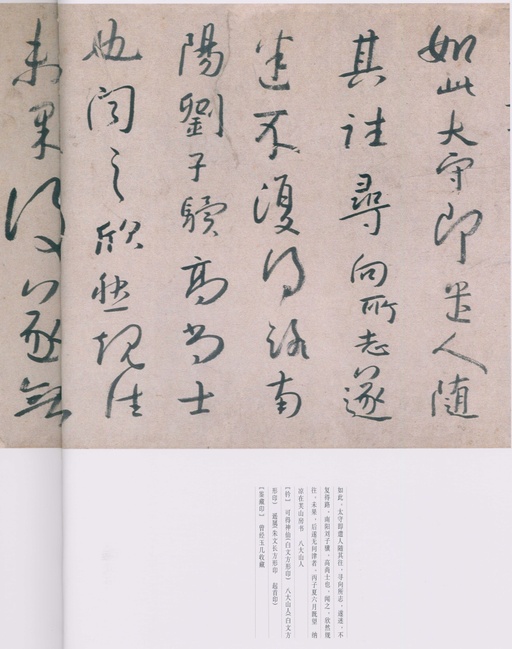 如此大守即遣人随
其往尋向所志遂
迷不復得路南
陽劉子驥高尚士
也聞之欣然規往
未果後遂無
如此，太守即遣人随其往，寻向所志，遂迷，不
复得路，南阳刘子骥，高尚士也，闻之，欣然规
往，未果，后遂无问津者，丙子夏六月既望
涼在芙山房书　八大山人
【钤】可得神仙(白文方形印)　八大山人(白文方
形印)　遥属(朱文长方形印　起首印)
【鉴藏印】曾经玉几收藏